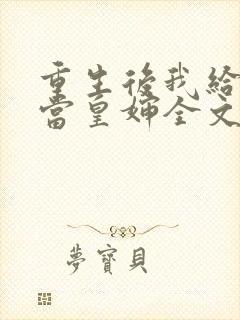 重生後我給
當皇婶全文
夢寶貝